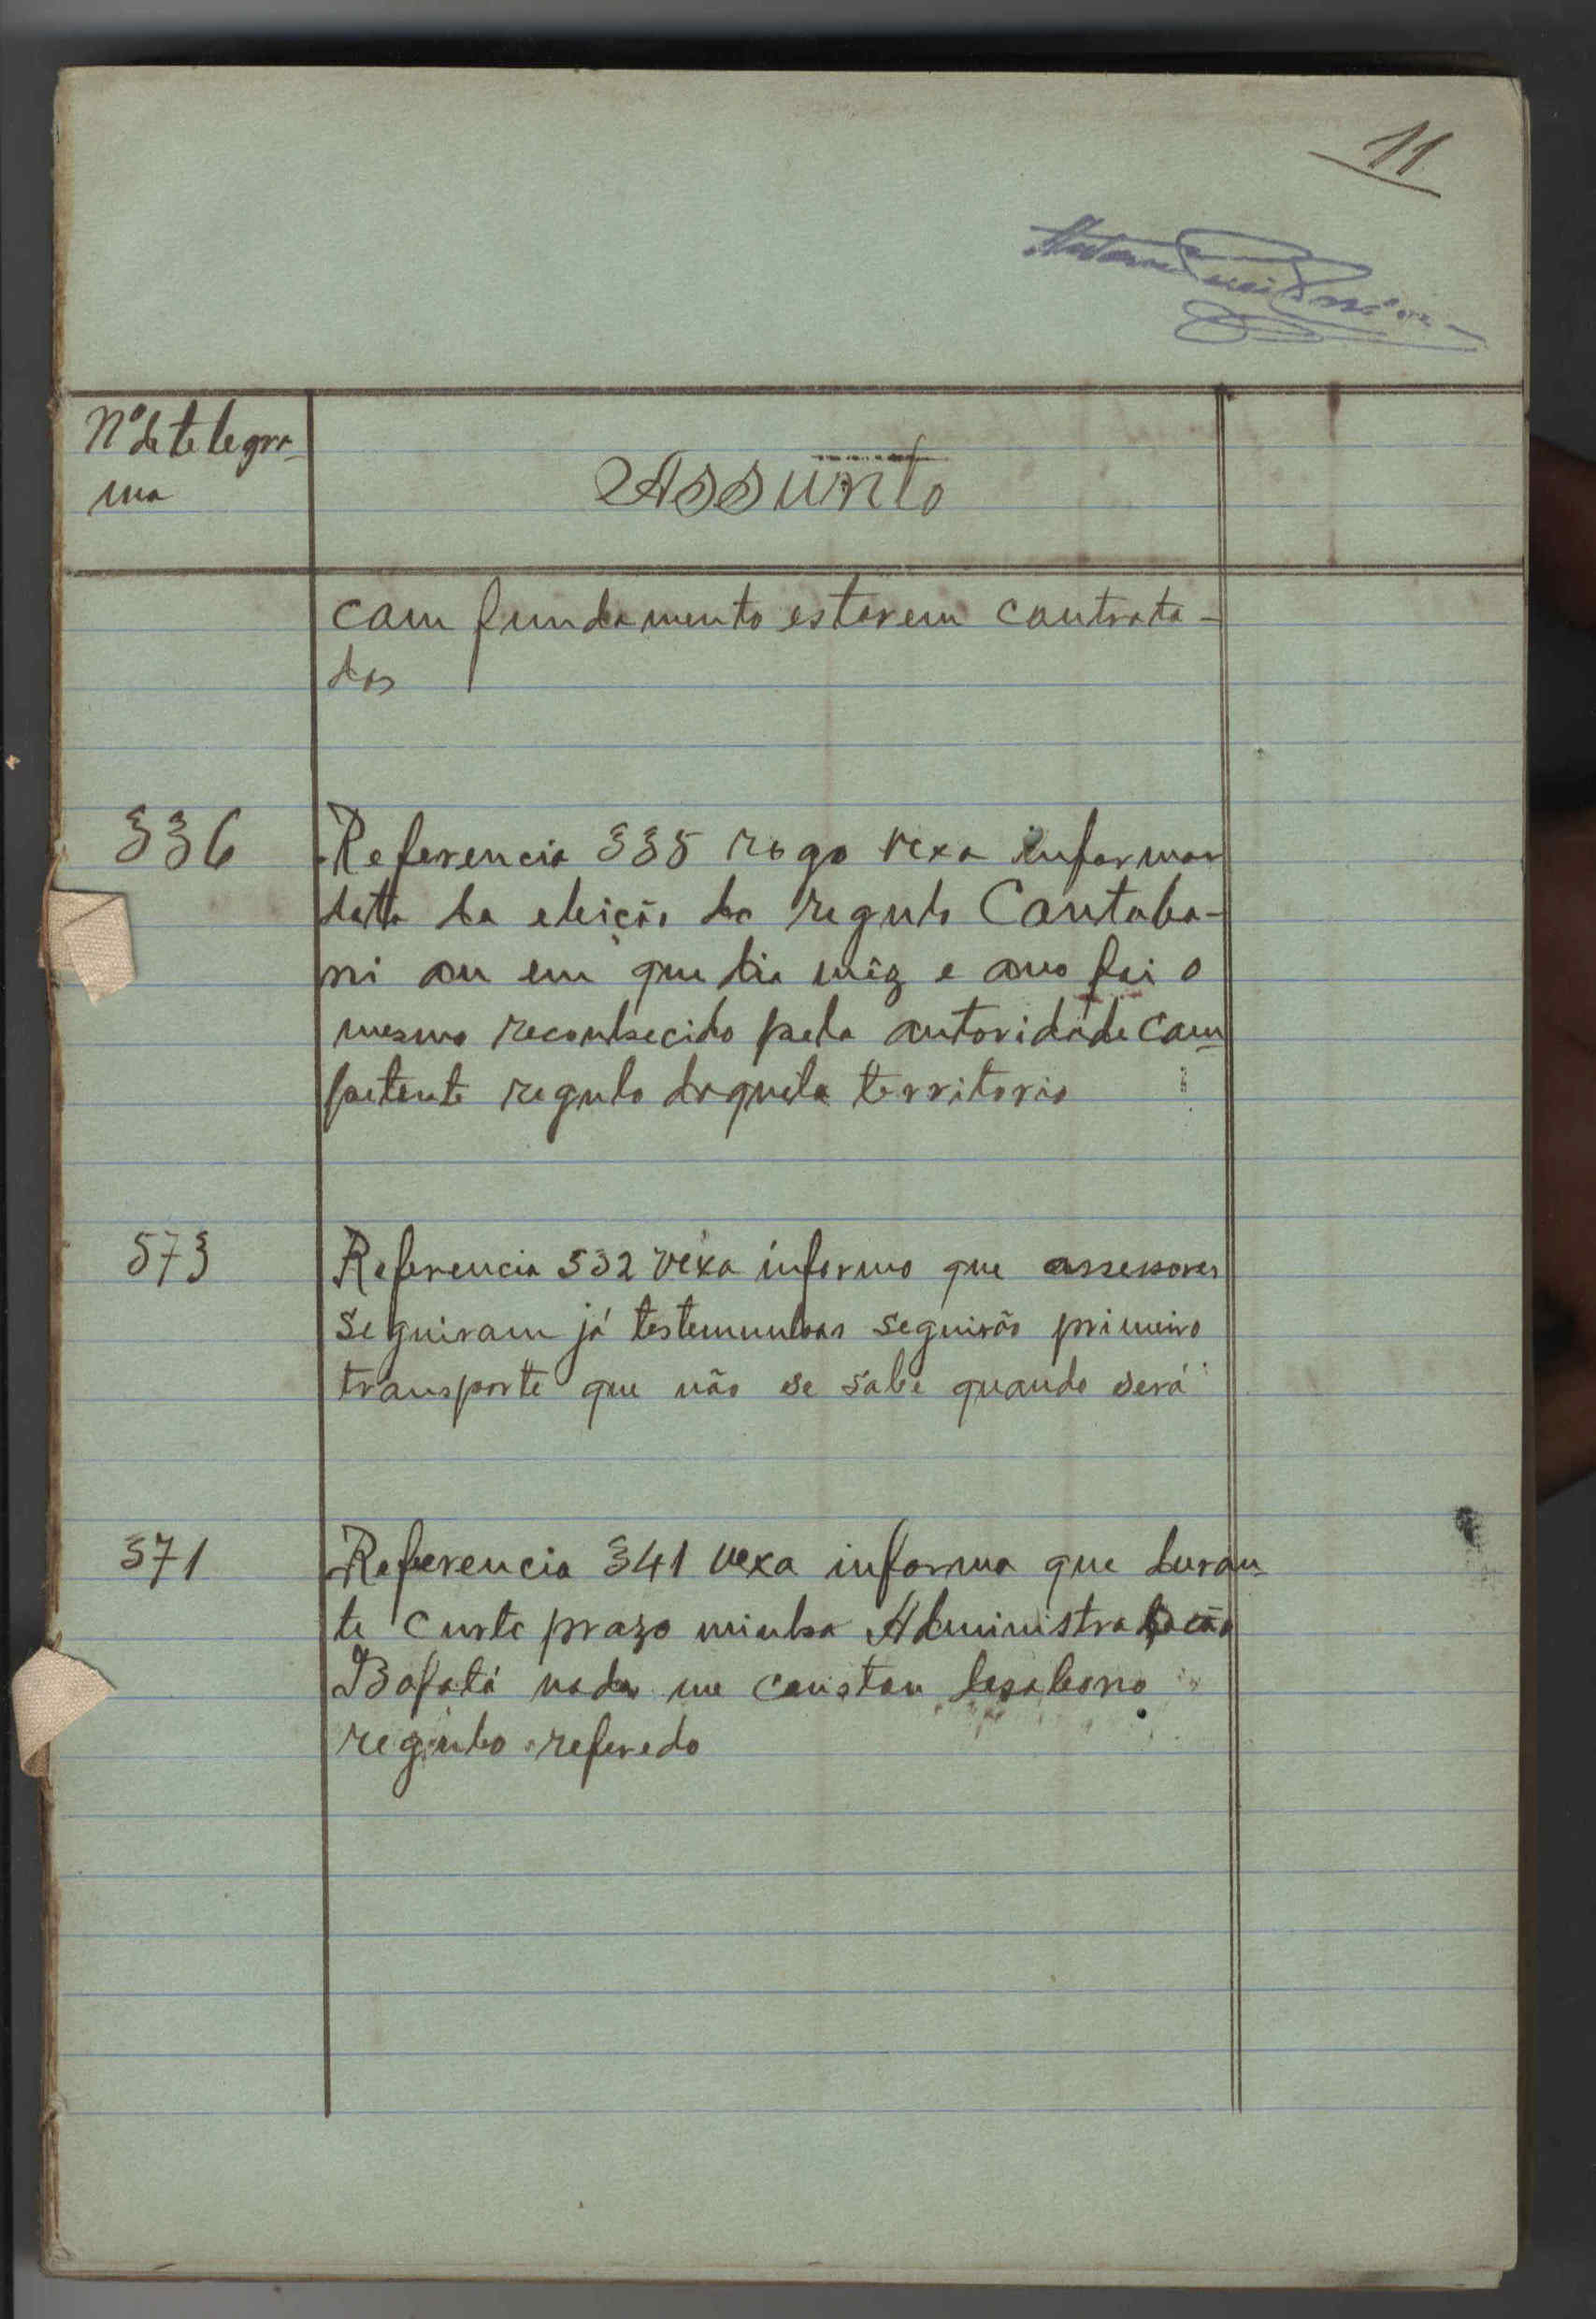 11
Nº de telegra-
ma
Assunto
com fundamento estarem contrata-
dos
336
Referencia 335 rogo vexa informar
data da eleição do regulo Cantaba-
ni ou em que dia mêz e ano foi o
mesmo reconhecido pela autoridade com-
petente regulo daquele territorio
573
Referencia 532 vexa informo que assessores
seguiram já testemunhas seguirão primeiro
transporte que não se sabe quando será
371
Referencia 341 vexa informa que duran-
te curto prazo minha Administração
Bafatá nada me constou desabono
regulo referedo